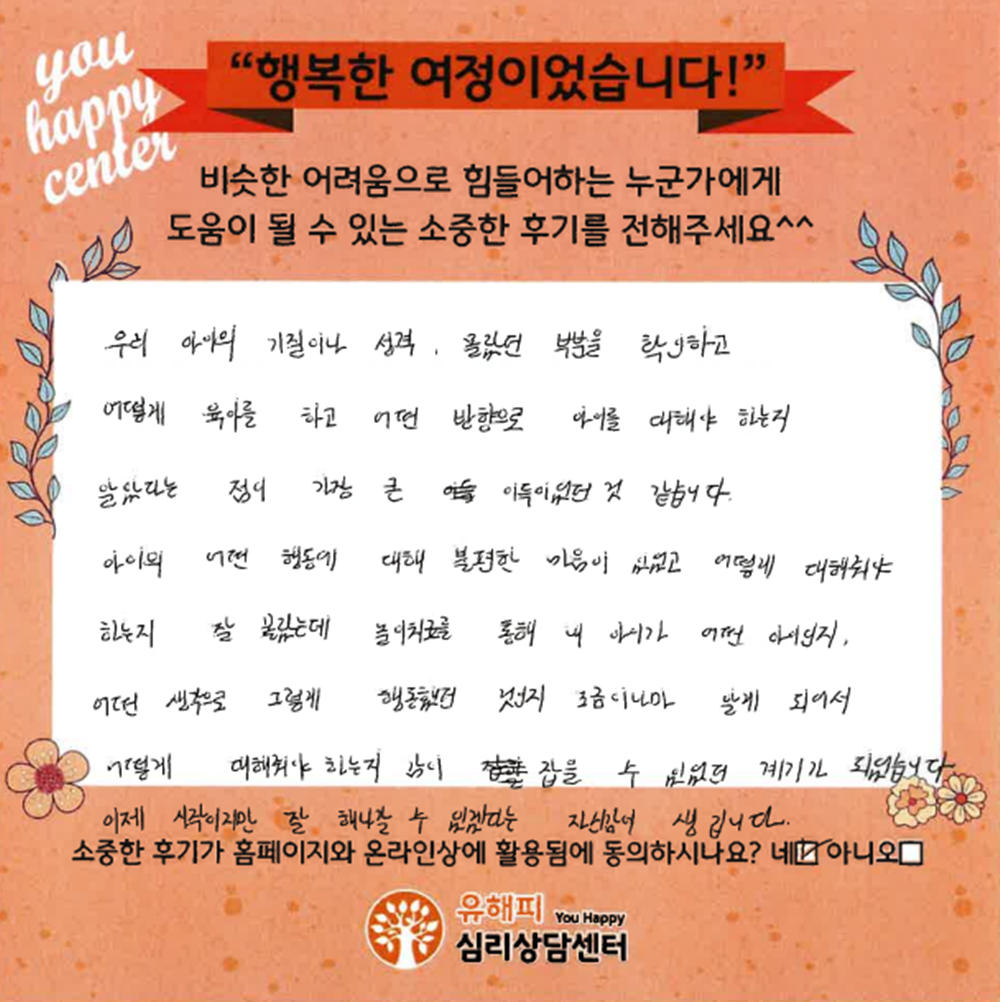 you
happy
center
“행복한 여정이었습니다!”
비슷한 어려움으로 힘들어하는 누군가에게
도움이 될 수 있는 소중한 후기를 전해주세요^^
우리 아이의 기질이나 성격, 몰랐던 부분을 확인하고
어떻게 육아를 하고 어떤 방향으로 아이를 대해야 하는지
알았다는 점이 가장 큰 이득이었던 것 같습니다.
아이의 어떤 행동에 대해 불편한 마음이 있었고 어떻게 대해줘야
하는지 잘 몰랐는데 놀이치료를 통해 내 아이가 어떤 아이인지,
어떤 생각으로 그렇게 행동했던 것인지 조금이나마 알게 되어서
어떻게 대해줘야 하는지 감이 잡을 수 있었던 계기가 되었습니다
이제 시작이지만 잘 해나갈 수 있겠다는 자신감이 생깁니다.
소중한 후기가 홈페이지와 온라인상에 활용됨에 동의하시나요? 네☑ 아니오☐
유해피 You Happy
심리상담센터